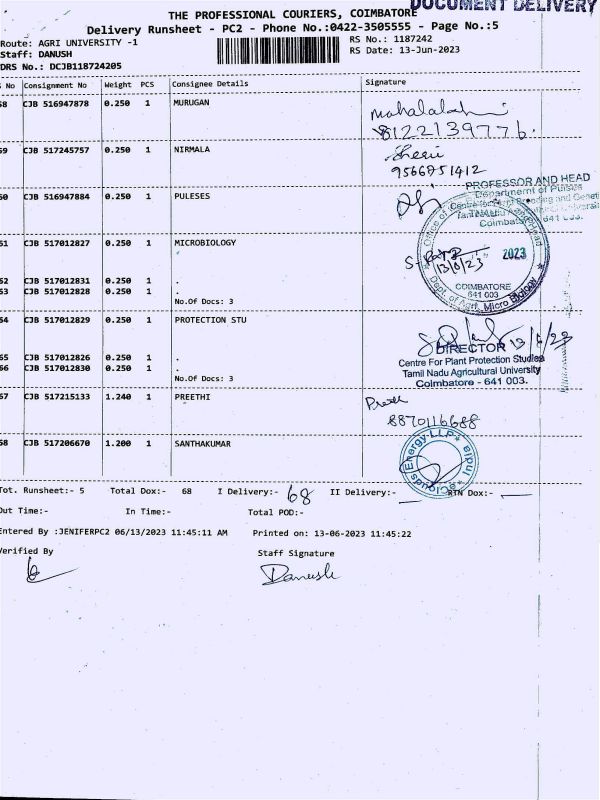 DOCUMENT DELIVERY
THE PROFESSIONAL COURIERS, COIMBATORE
Delivery Runsheet - PC2 - Phone No.:0422-3505555 - Page No.:5
Route: AGRI UNIVERSITY -1
RS No.: 1187242
Staff: DANUSH
RS Date: 13-Jun-2023
DRS No.: DCJB118724205
No Consignment No Weight PCS Consignee Details Signature
58 CJB 516947878 0.250 1 MURUGAN
8122139776.
59 CJB 517245757 0.250 1 NIRMALA
9566851412
60 CJB 516947884 0.250 1 PULESES
PROFESSOR AND HEAD
Department of Pulses
Coimbatore 641 003.
61 CJB 517012827 0.250 1 MICROBIOLOGY
2023
13/6/23
COIMBATORE
641 003
Dept. of Agrl. Micro Biology
62 CJB 517012831 0.250 1 .
63 CJB 517012828 0.250 1 .
No.Of Docs: 3
64 CJB 517012829 0.250 1 PROTECTION STU
13/6/23
DIRECTOR
Centre For Plant Protection Studies
Tamil Nadu Agricultural University
Coimbatore - 641 003.
65 CJB 517012826 0.250 1 .
66 CJB 517012830 0.250 1 .
No.Of Docs: 3
67 CJB 517215133 1.240 1 PREETHI
8870116688
68 CJB 517206670 1.200 1 SANTHAKUMAR
Energy LLP
India
Tot. Runsheet:- 5 Total Dox:- 68 I Delivery:- 68 II Delivery:- — RTN Dox:- —
Out Time:- In Time:- Total POD:-
Entered By :JENIFERPC2 06/13/2023 11:45:11 AM Printed on: 13-06-2023 11:45:22
Verified By Staff Signature
Danush